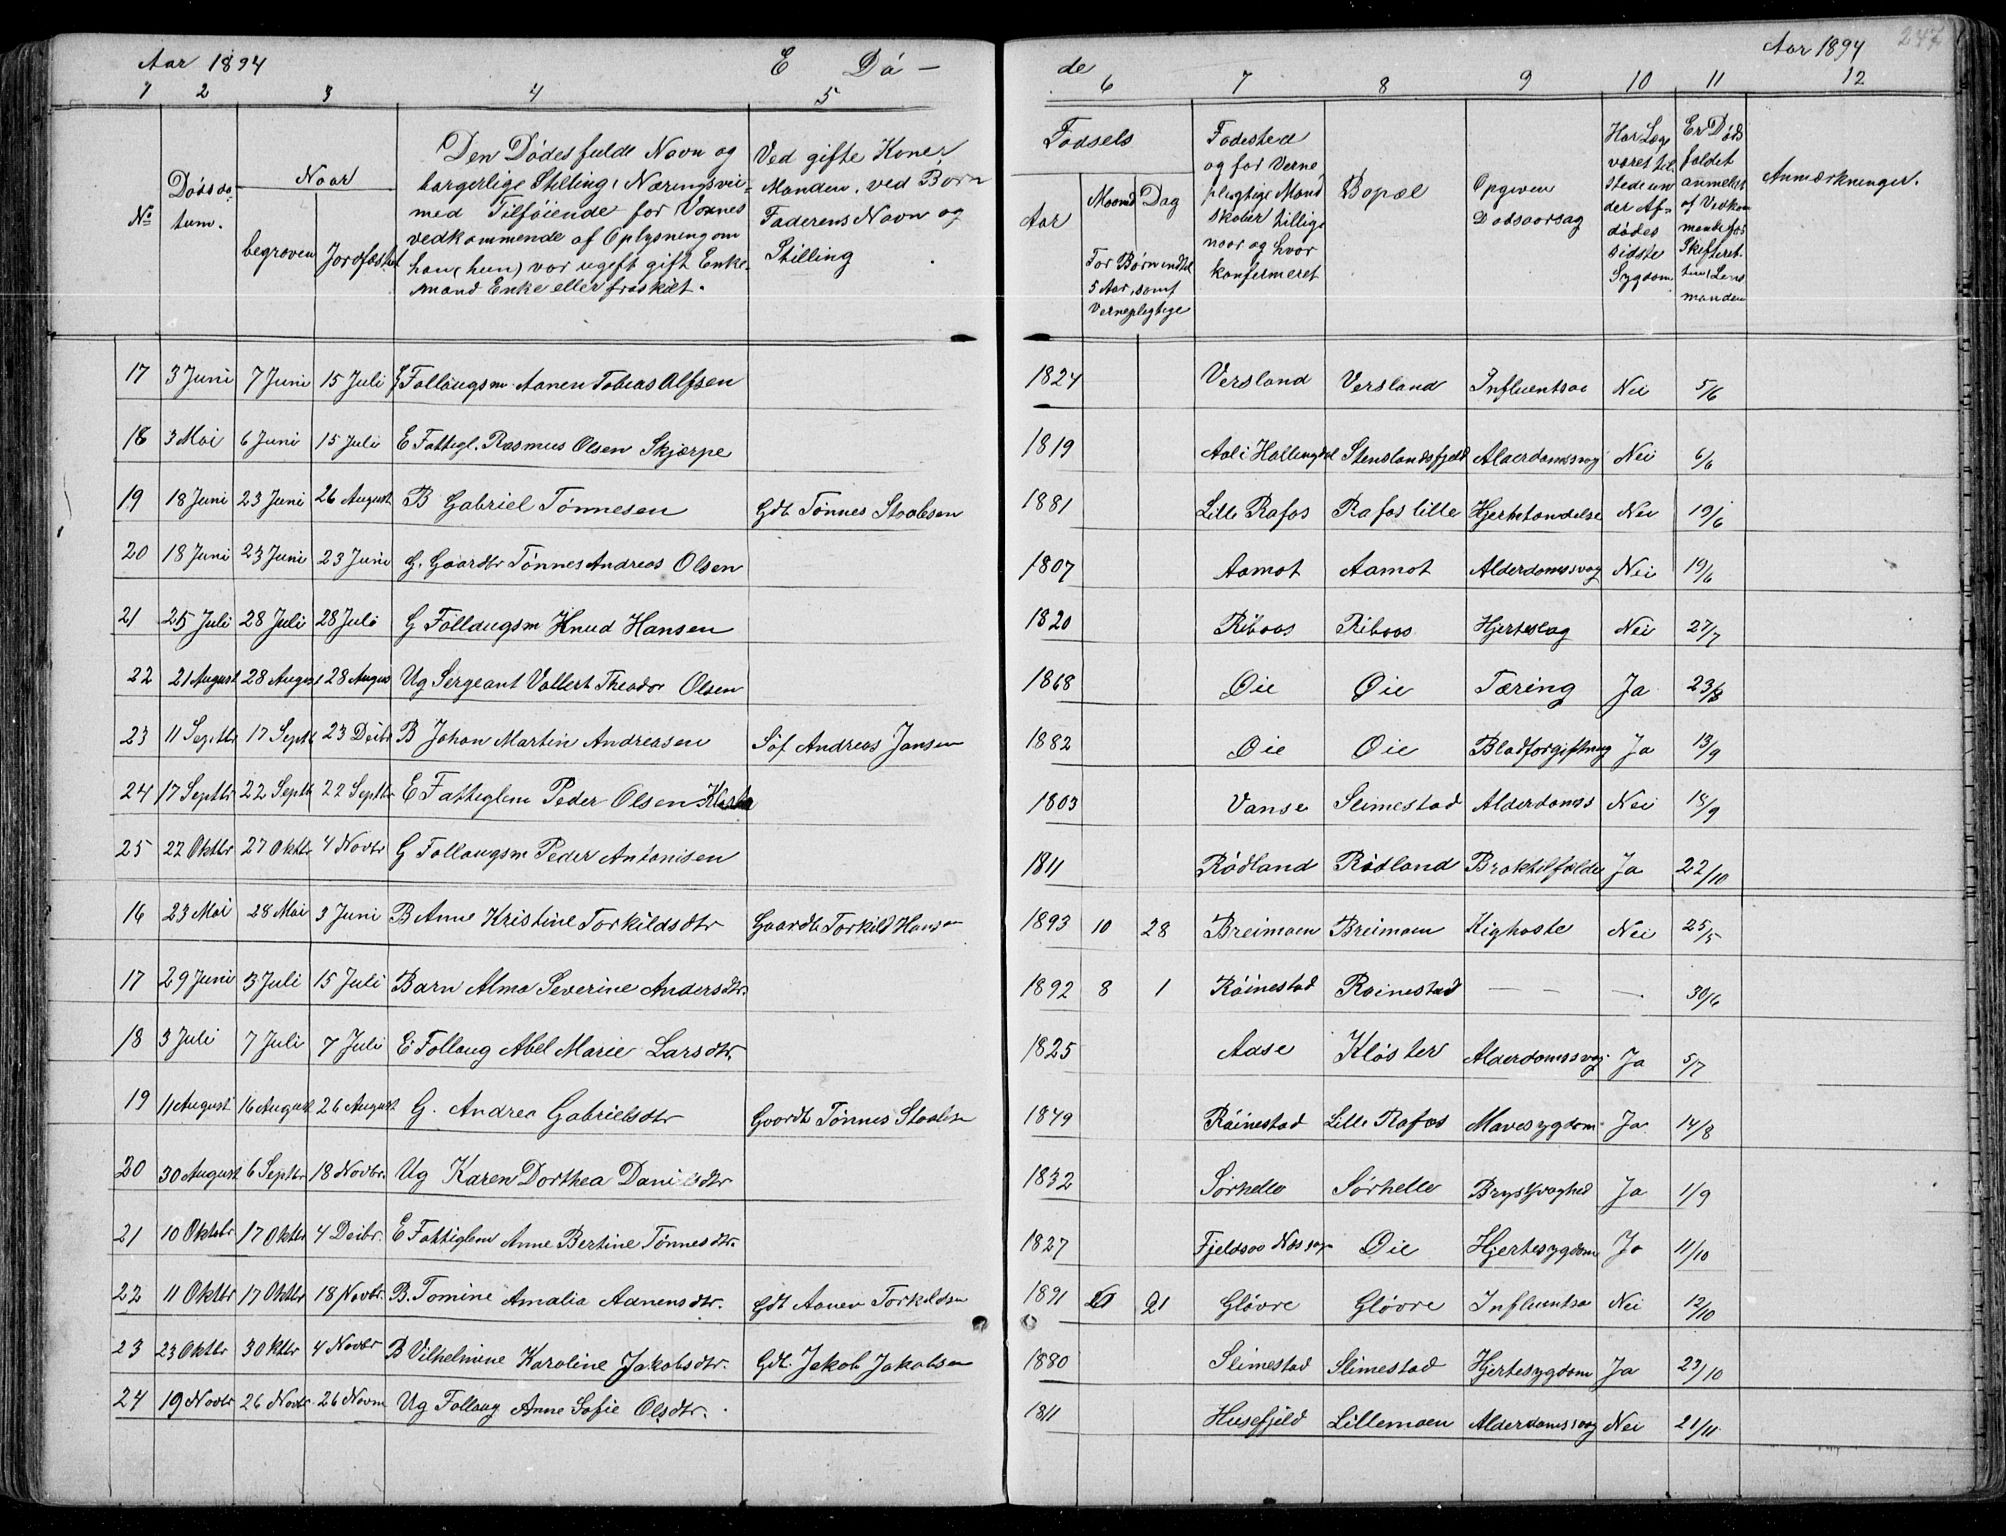 Aar 1894 E Dö —
1 2 3 4 5
No
Dödsda-
tum.
Naar
begraven
Jordfæstet
Den Dödes fulde Navn og
borgerlige Stilling, Næringsvei
med Tilföiende for Voxnes
vedkommende af Oplysning om
han (hun) var ugift gift Enke-
mand Enke eller fraskilt.
Ved gifte Koner,
Manden, ved Börn
Faderens Navn og
Stilling
17 3 Juni 7 Juni 15 Juli Follaugsm. Aanen Tobias Alfsen
18 3 Mai 6 Juni 15 Juli E Fattigl. Rasmus Olsen Skjærpe
19 18 Juni 23 Juni 26 August B Gabriel Tönnesen Gdb Tönnes Staalesen
20 18 Juni 23 Juni 23 Juni G. Gaardbr Tönnes Andreas Olsen
21 25 Juli 28 Juli 28 Juli G Follaugsm Knud Hansen
22 21 August 28 August 28 August Ug Sergeant Vallert Theodor Olsen
23 11 Septbr 17 Septb 23 Decbr B Johan Martin Andreasen Söf Andreas Jansen
24 17 Septbr 22 Septb 22 Septbr E Fattiglem Peder Olsen
25 22 Oktbr 27 Oktbr 4 Novbr G Follaugsm Peder Antonisen
16 23 Mai 28 Mai 3 Juni B Anne Kristine Torkildsdtr Gaardb Torkild Hansen
17 29 Juni 3 Juli 15 Juli Barn Alma Severine Andersdtr.
18 3 Juli 7 Juli 7 Juli E Follaug Abel Marie Larsdtr.
19 11 August 16 August 26 August G. Andrea Gabrielsdtr Gaardb Tönnes Staalesen
20 30 August 6 Septbr 18 Novbr. Ug Karen Dorthea Danielsdtr
21 10 Oktbr 17 Oktbr 4 Decbr. E Fattiglem Anne Bertine Tönnesdtr.
22 11 Oktbr 17 Oktbr 18 Novbr. B. Tomine Amalia Aanensdtr. Gdb Aanen Torkildsen
23 23 Oktbr 30ktbr 4 Novbr B Vilhelmine Karoline Jakobsdtr. Gdb. Jakob Jakobsen
24 19 Novbr 26 Novbr 26 Novm Ug Follaug Anne Sofie Olsdtr.
de Aar 1894 247
6 7 8 9 10 11 12
Födsels
Aar
Maaned Dag
For Börn indtil
5 Aar, samt
Vernepligtige
Födested
og for Verne
pligtige Mand
skaber tillige
naar og hvor
konfermeret
Bopæl
Opgiven
Dödsaarsag
Har Læge
været til
stede un
der Af-
dödes
sidste
Sygdom
Er Döds
faldet
anmeldt
af Vedkom
mende for
Skifteret
ten, Lens
manden
Anmærkninger.
1824 Versland Versland Influentsa Nei 5/6
1819 Aal i Hallingdal Stenslandsfjeld Alderdomsvag Nei 6/6
1881 Lille Rafos Rafos lille Hjertetændelse Nei 19/6
1807 Aamot Aamot Alderdomssvag Nei 19/6
1820 Riboos Riboos Hjerteslag Nei 27/7
1868 Øie Øie Tæring Ja 23/8
1882 Øie Øie Blodforgiftning Ja 13/9
1803 Vanse Slimestad Alderdomss Nei 18/9
1811 Rödland Rödland Braktilfælde Ja 22/10
1893 10 28 Breimoen Breimoen Kighoste Nei 25/5
1892 8 1 Röinestad Röinestad — — — 30/6
1825 Aase Klöster Alderdomssvag. Ja 5/7
1849 Röinestad Lille Rafos Mavesygdom Ja 14/8
1832 Sörhelle Sörhelle Brystsvaghed Ja 1/9
1827 Fjeldsaa Øie Hjertesygdom Ja 11/10
1891 21 Glövre Glövre Influentsa Nei 12/10
1880 Slimestad Slimestad Hjertesygdom Ja 23/10
1811 Husefjeld Lillemoen Alderdomssvag Nei 21/11